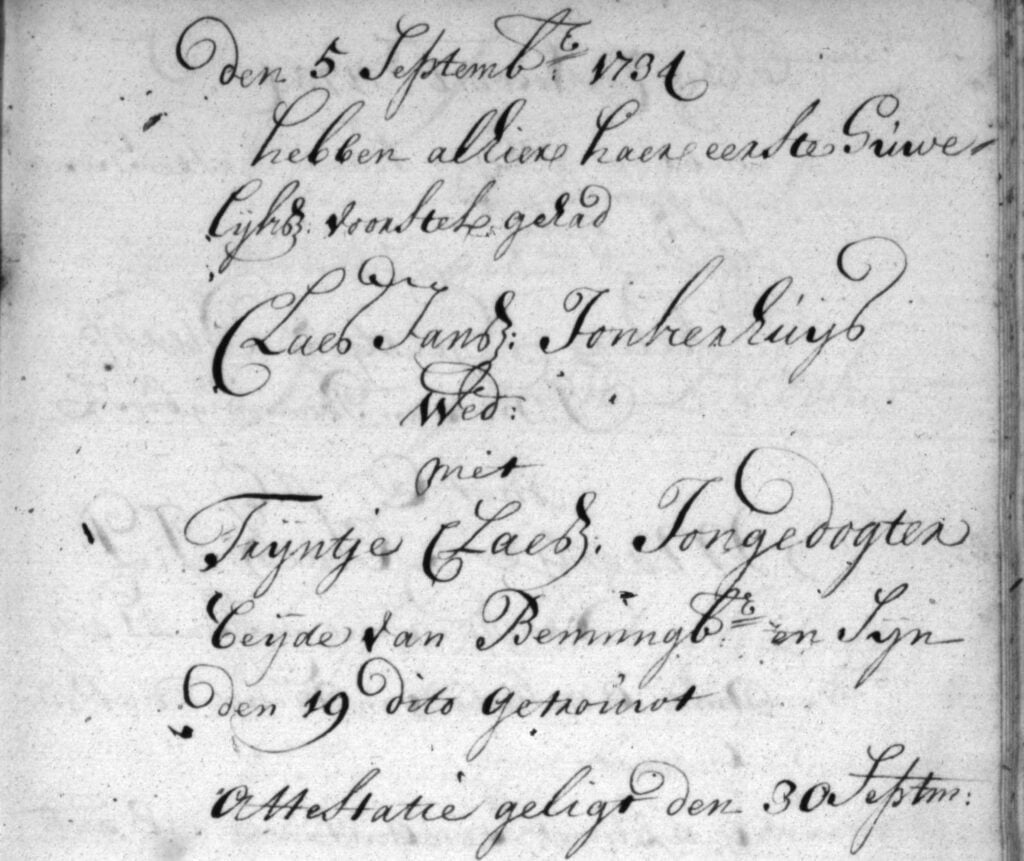 den 5 Septemb:r 1734
hebben alhier haer eerste Huwe-
lyks: voorstel gehad
Claes Jansz: Jonkerhuys
Wed:
met
Tryntje Claesz. Jongedogter
beyde van Benningb:r en Syn
den 19 dito getrouwt
Attestatie geligt den 30 Septm: